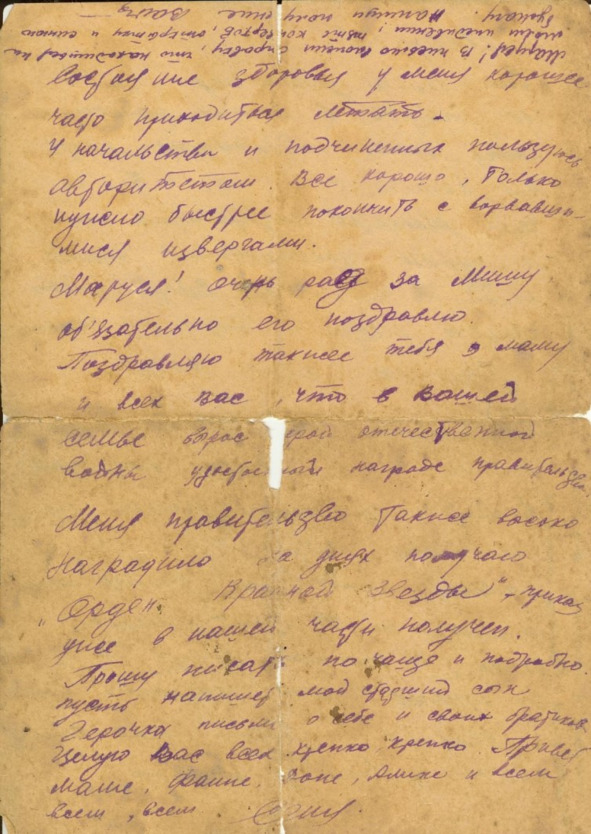 Маруся! В письмо вложил справку, что находитесь на
моем иждивении, нет конвертов, открыток и синюю
бумагу. Напиши кому еще
Состояние здоровья у меня хорошее
часто приходиться летать.
У начальства и подчиненных пользуюсь
авторитетом. Все хорошо, только
нужно быстрее покончить с ворвавши-
мися извергами.
Маруся! Очень рад за Мишу
об'язательно его поздравлю.
Поздравляю также тебя, маму
и всех вас, что в вашей
семье вырос герой отечественной
войны удостоенный награде правительства.
Меня правительзво также высоко
наградило на днях получаю
"Орден Красной Звезды", приказ
уже в нашей части получен.
Прошу писать по чаще и подробно.
пусть напишет мой старший сын
Герочка письмо о себе и своих братиках
Целую вас всех крепко крепко. Привет
маме, Фаине, Соне, и всем
всем, всем